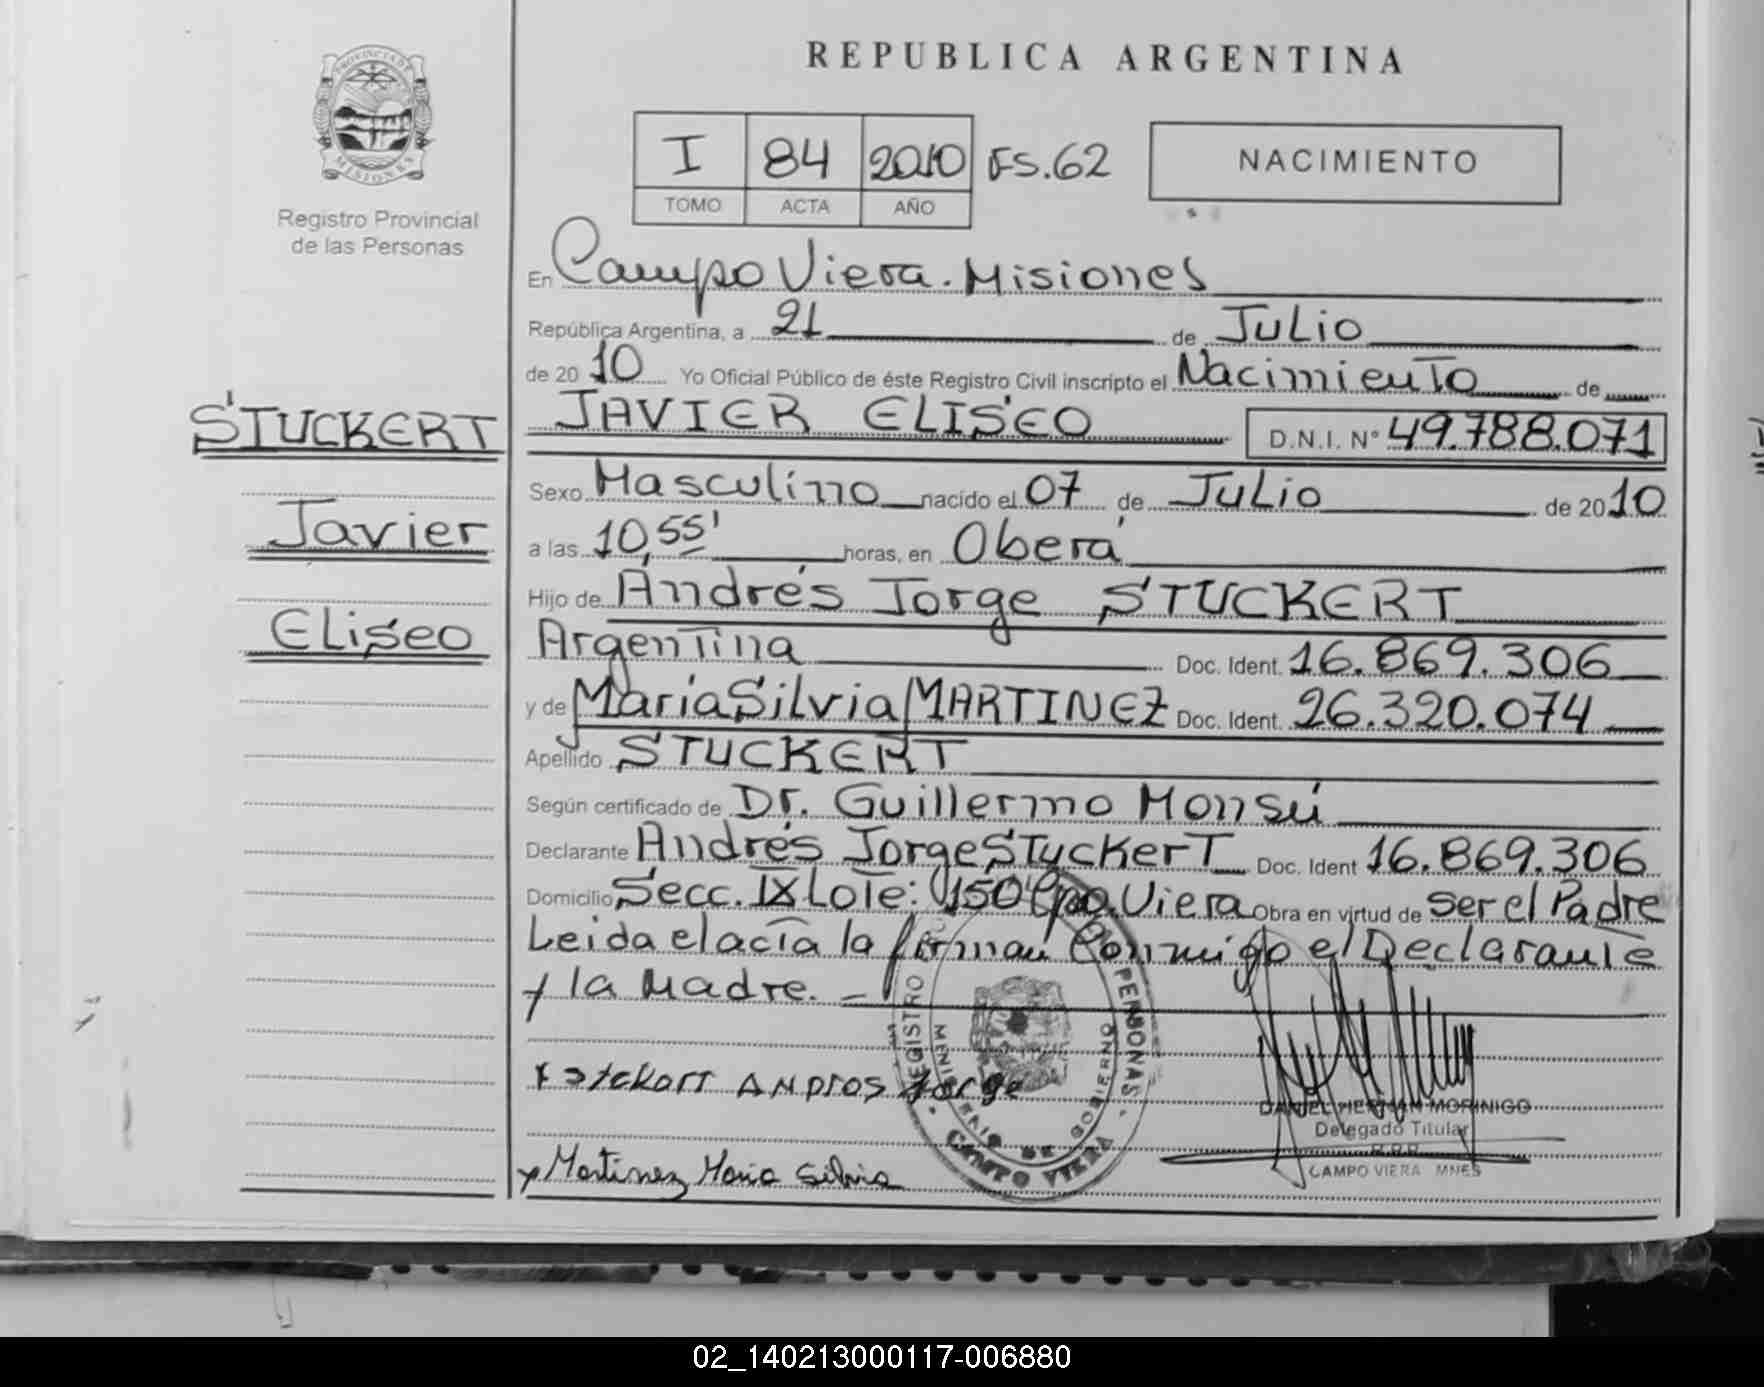 PROVINCIA DE
MISIONES
Registro Provincial
de las Personas
STUCKERT
Javier
Eliseo
REPUBLICA ARGENTINA
I 84 2010 FS.62
TOMO ACTA AÑO
NACIMIENTO
En Campo Viera. Misiones
República Argentina, a 21 de Julio
de 20 10 Yo Oficial Público de éste Registro Civil inscripto el Nacimiento de
JAVIER ELISEO D.N.I. N° 49.788.071
Sexo Masculino nacido el 07 de Julio de 20 10
a las 10,55' horas, en Oberá
Hijo de Andrés Jorge STUCKERT
Argentina Doc. Ident. 16.869.306
y de María Silvia MARTINEZ Doc. Ident. 26.320.074
Apellido STUCKERT
Según certificado de Dr. Guillermo Monsú
Declarante Andrés Jorge Stuckert Doc. Ident 16.869.306
Domicilio Secc. IX Lote: 150 Cpo. Viera Obra en virtud de ser el Padre
Leida el acta la firman Conmigo el Declarante
y la Madre.
x Stckort Andros Jorge
x Martinez Maria Silvia
REGISTRO PERSONAS
GOBIERNO
CAMPO VIERA
DANIEL HERNAN MORINIGO
Delegado Titular
R.P.P.
CAMPO VIERA MNES
02_140213000117-006880